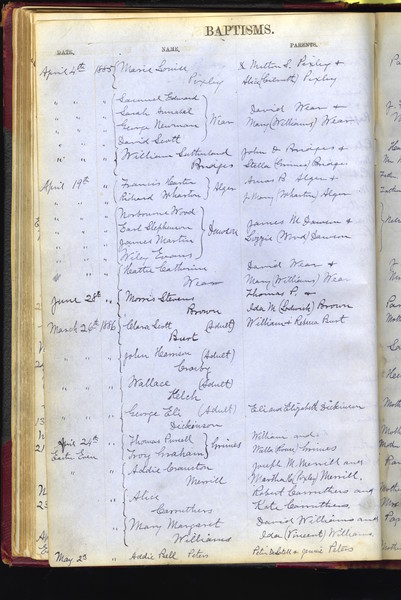 BAPTISMS.
DATE. NAME. PARENTS.
April 4th 1885 Marie Louise Milton S. Pixley &
Pixley Pixley
" " " Samuel Edward
" " " Sarah David Wear &
" " " George Newman Wear Mary (Williams) Wear
" " " David Scott
" " " William Sutherland John D. Bridges &
Bridges Stella (Grimes) Bridges
April 19th " Francis Alger Amos B. Alger &
" " " Richard Wharton Mary (Wharton) Alger
" " " Norbourne Wood
" " " Earl Stephenson James M. Dawson &
" " " James Martin Dawson (Wood) Dawson
" " " Wiley Evans
" " " Hattie Catherine David Wear &
Wear Mary (Williams) Wear
June 28th " Morris Stevens Thomas P. &
Brown Ida M. Brown
March 26th 1886 Clara Scott (Adult) William & Rebecca Burt
Burt
" " " John Harrison (Adult)
Crosby
" " " Wallace (Adult)
Welch
" " " George Eli (Adult) Eli and Elizabeth Dickinson
Dickinson
April 24th " Thomas Grimes William and
Easter Even Graham Grimes
Addie Cranston Joseph M. Merrill and
Merrill Martha (Pixley) Merrill.
" " " Alice Robert Carruthers and
Carruthers Kate Carruthers
" " " Mary Margaret David Williams and
Williams Ida (Vincent) Williams
May 2d " Addie Bell Peters Jennie Peters